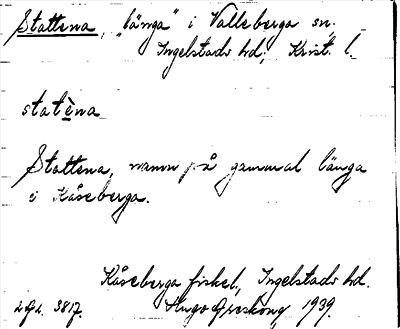 Stattena, "länga" i Valleberga sn,
Ingelstads hd, Krist. l.
statèna
Stattena, namn på gammal länga
i Kåseberga.
Kåseberga fiskel., Ingelstads hd.
3817. Hugo Areskoug 1939.